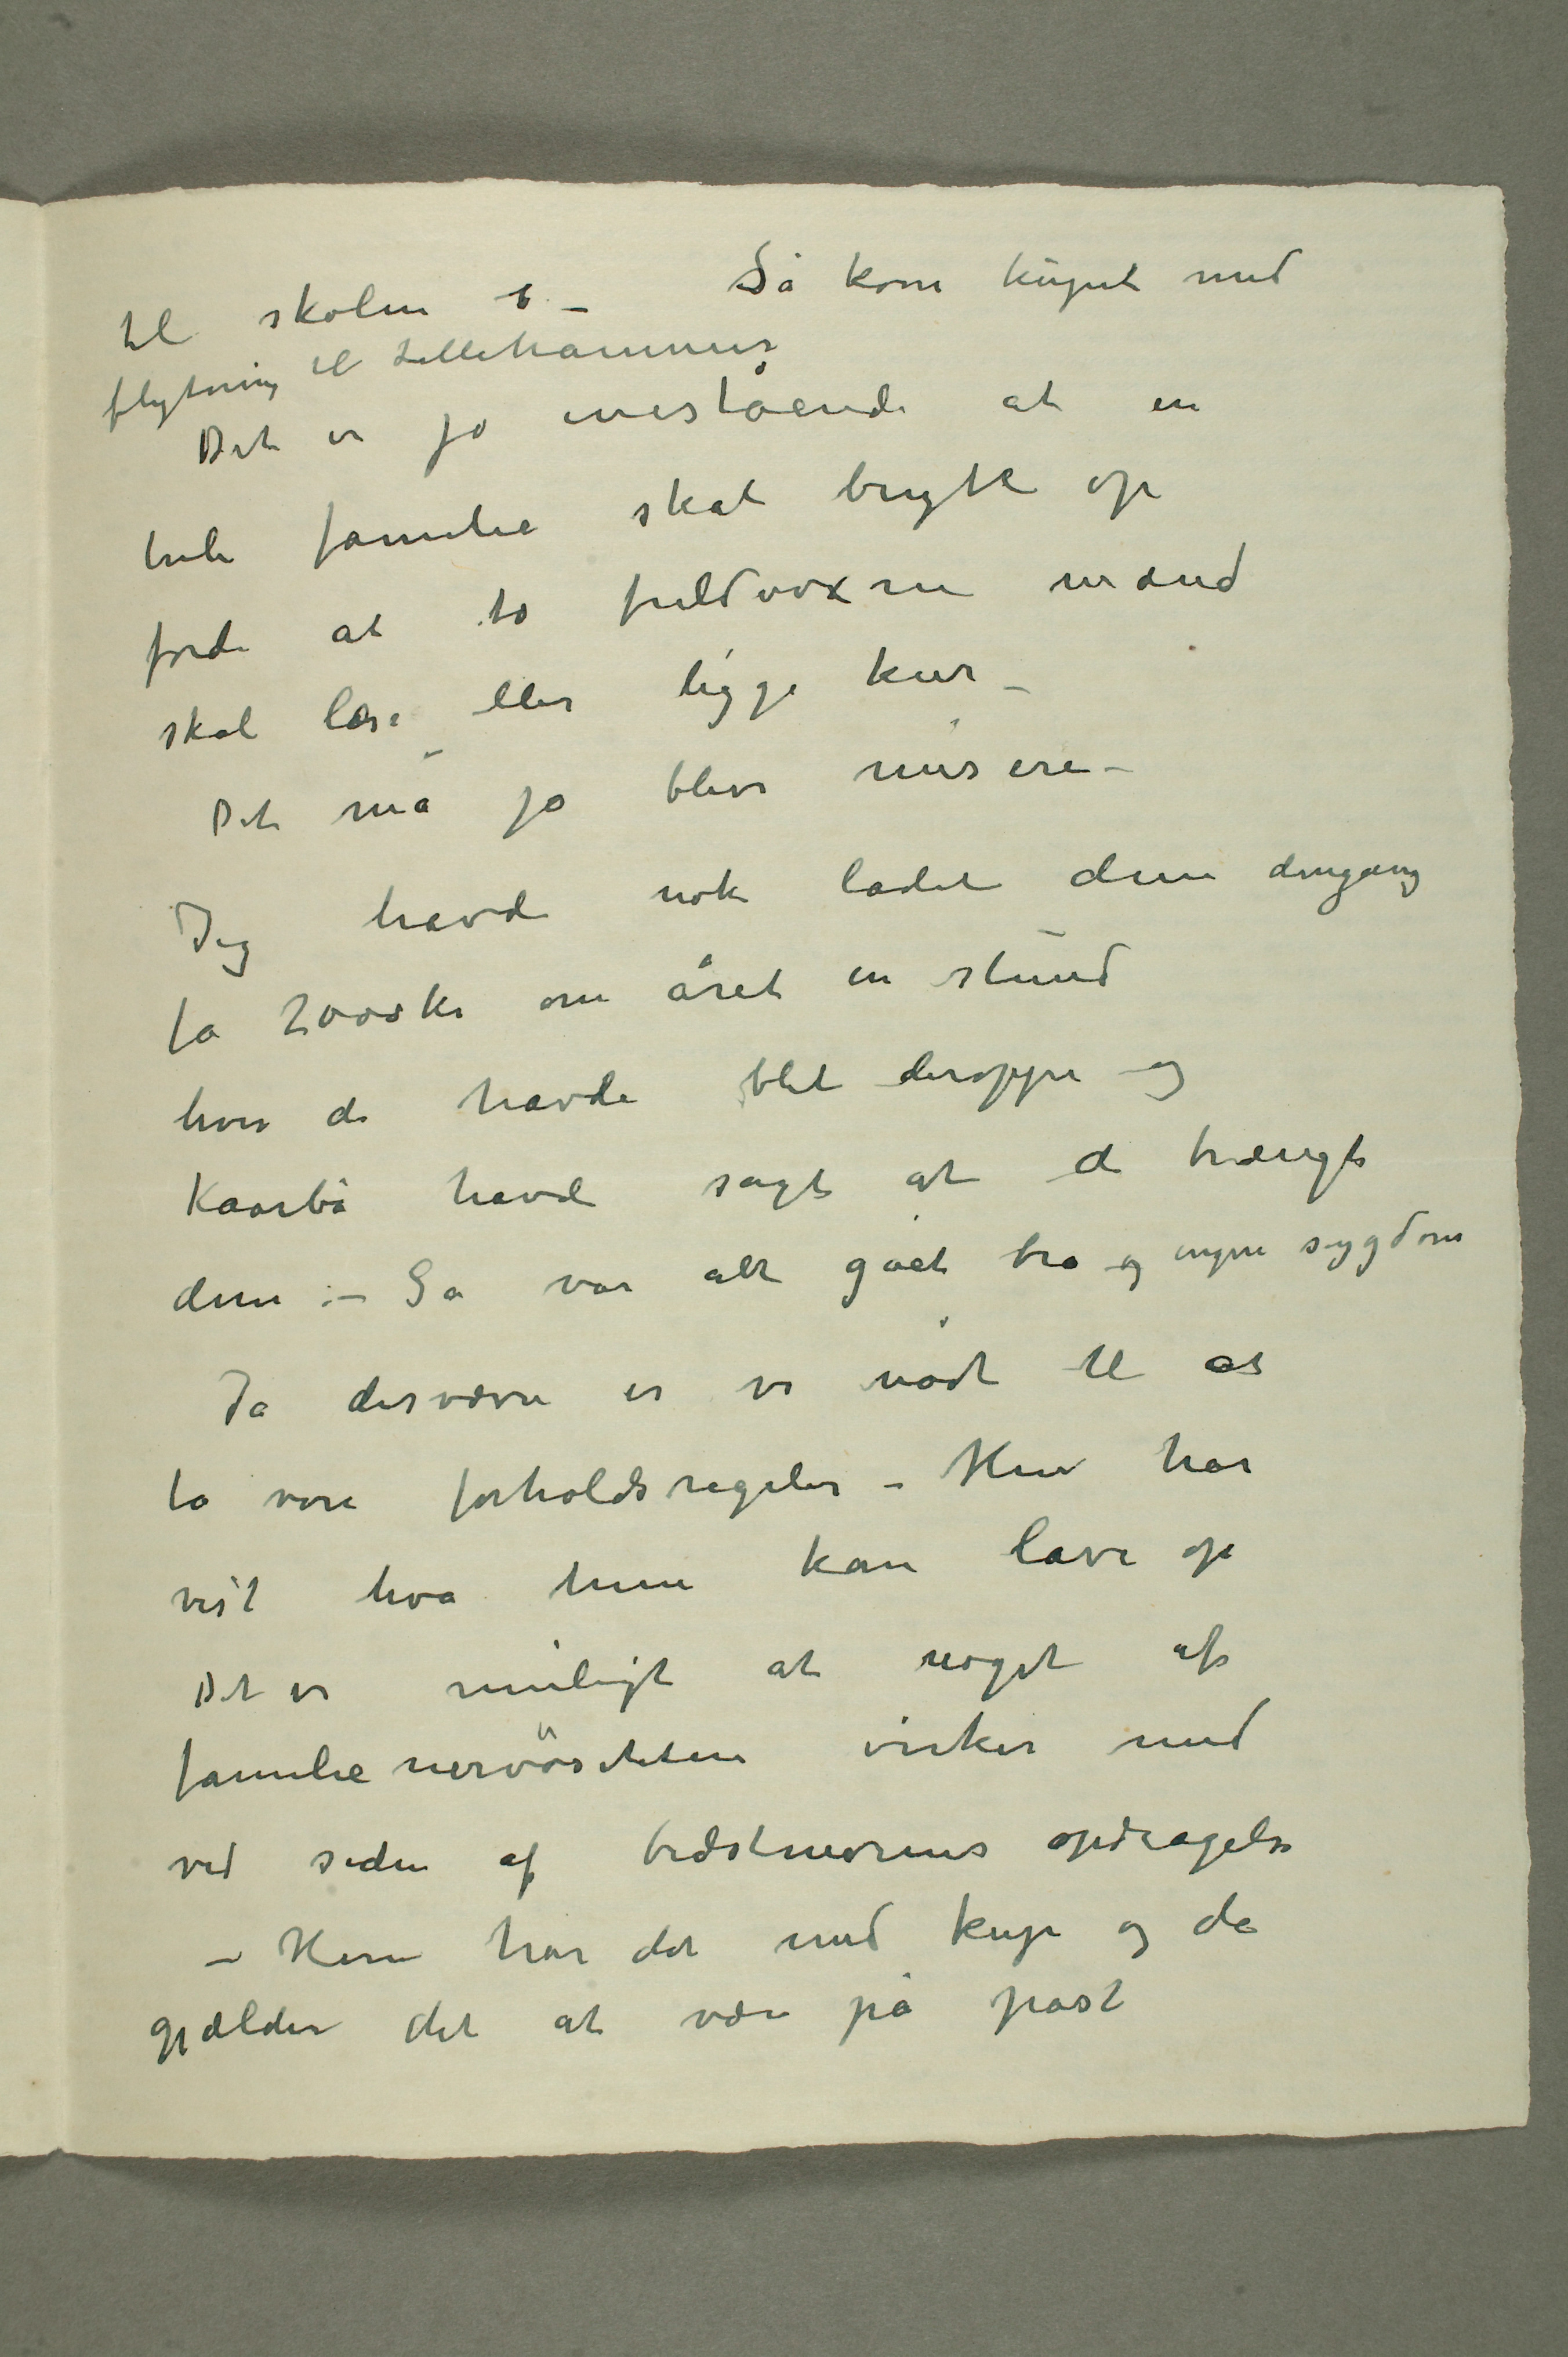 til skolen – Så kom küpet med
flytning til Lillehammer
Det er jo enestående at en
hele familie skal bryte op
fordi at to fuldvoxne mænd
skal læse eller ligge kur –
Det må jo blive misere –
Jeg havde nok ladet dem dengang
få 2000 kr om året en stund
hvis de havde blet deroppe og
Kaarbø havde sagt at de trængte
dem. – Så var alt gået bra og ingen sygdom
Ja desværre er vi nødt til at
ta vore forholdsregeler – Hun har
vist hva hun kan lave op
Det er muligt at noget af
familienervösiteten virker med
ved siden af bedstmorens opdragelse
– Hun har det med kup og da
gjælder det at være på post